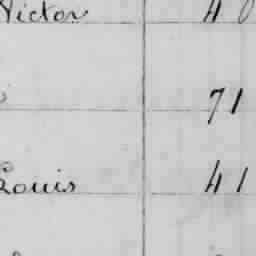 Victor 40
71
Louis 41